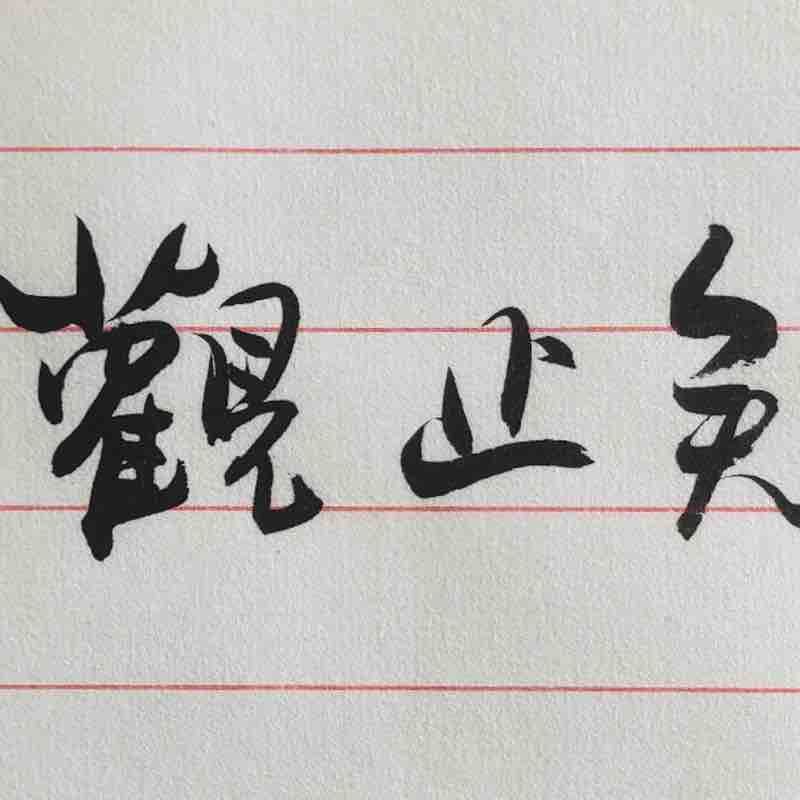 觀止矣